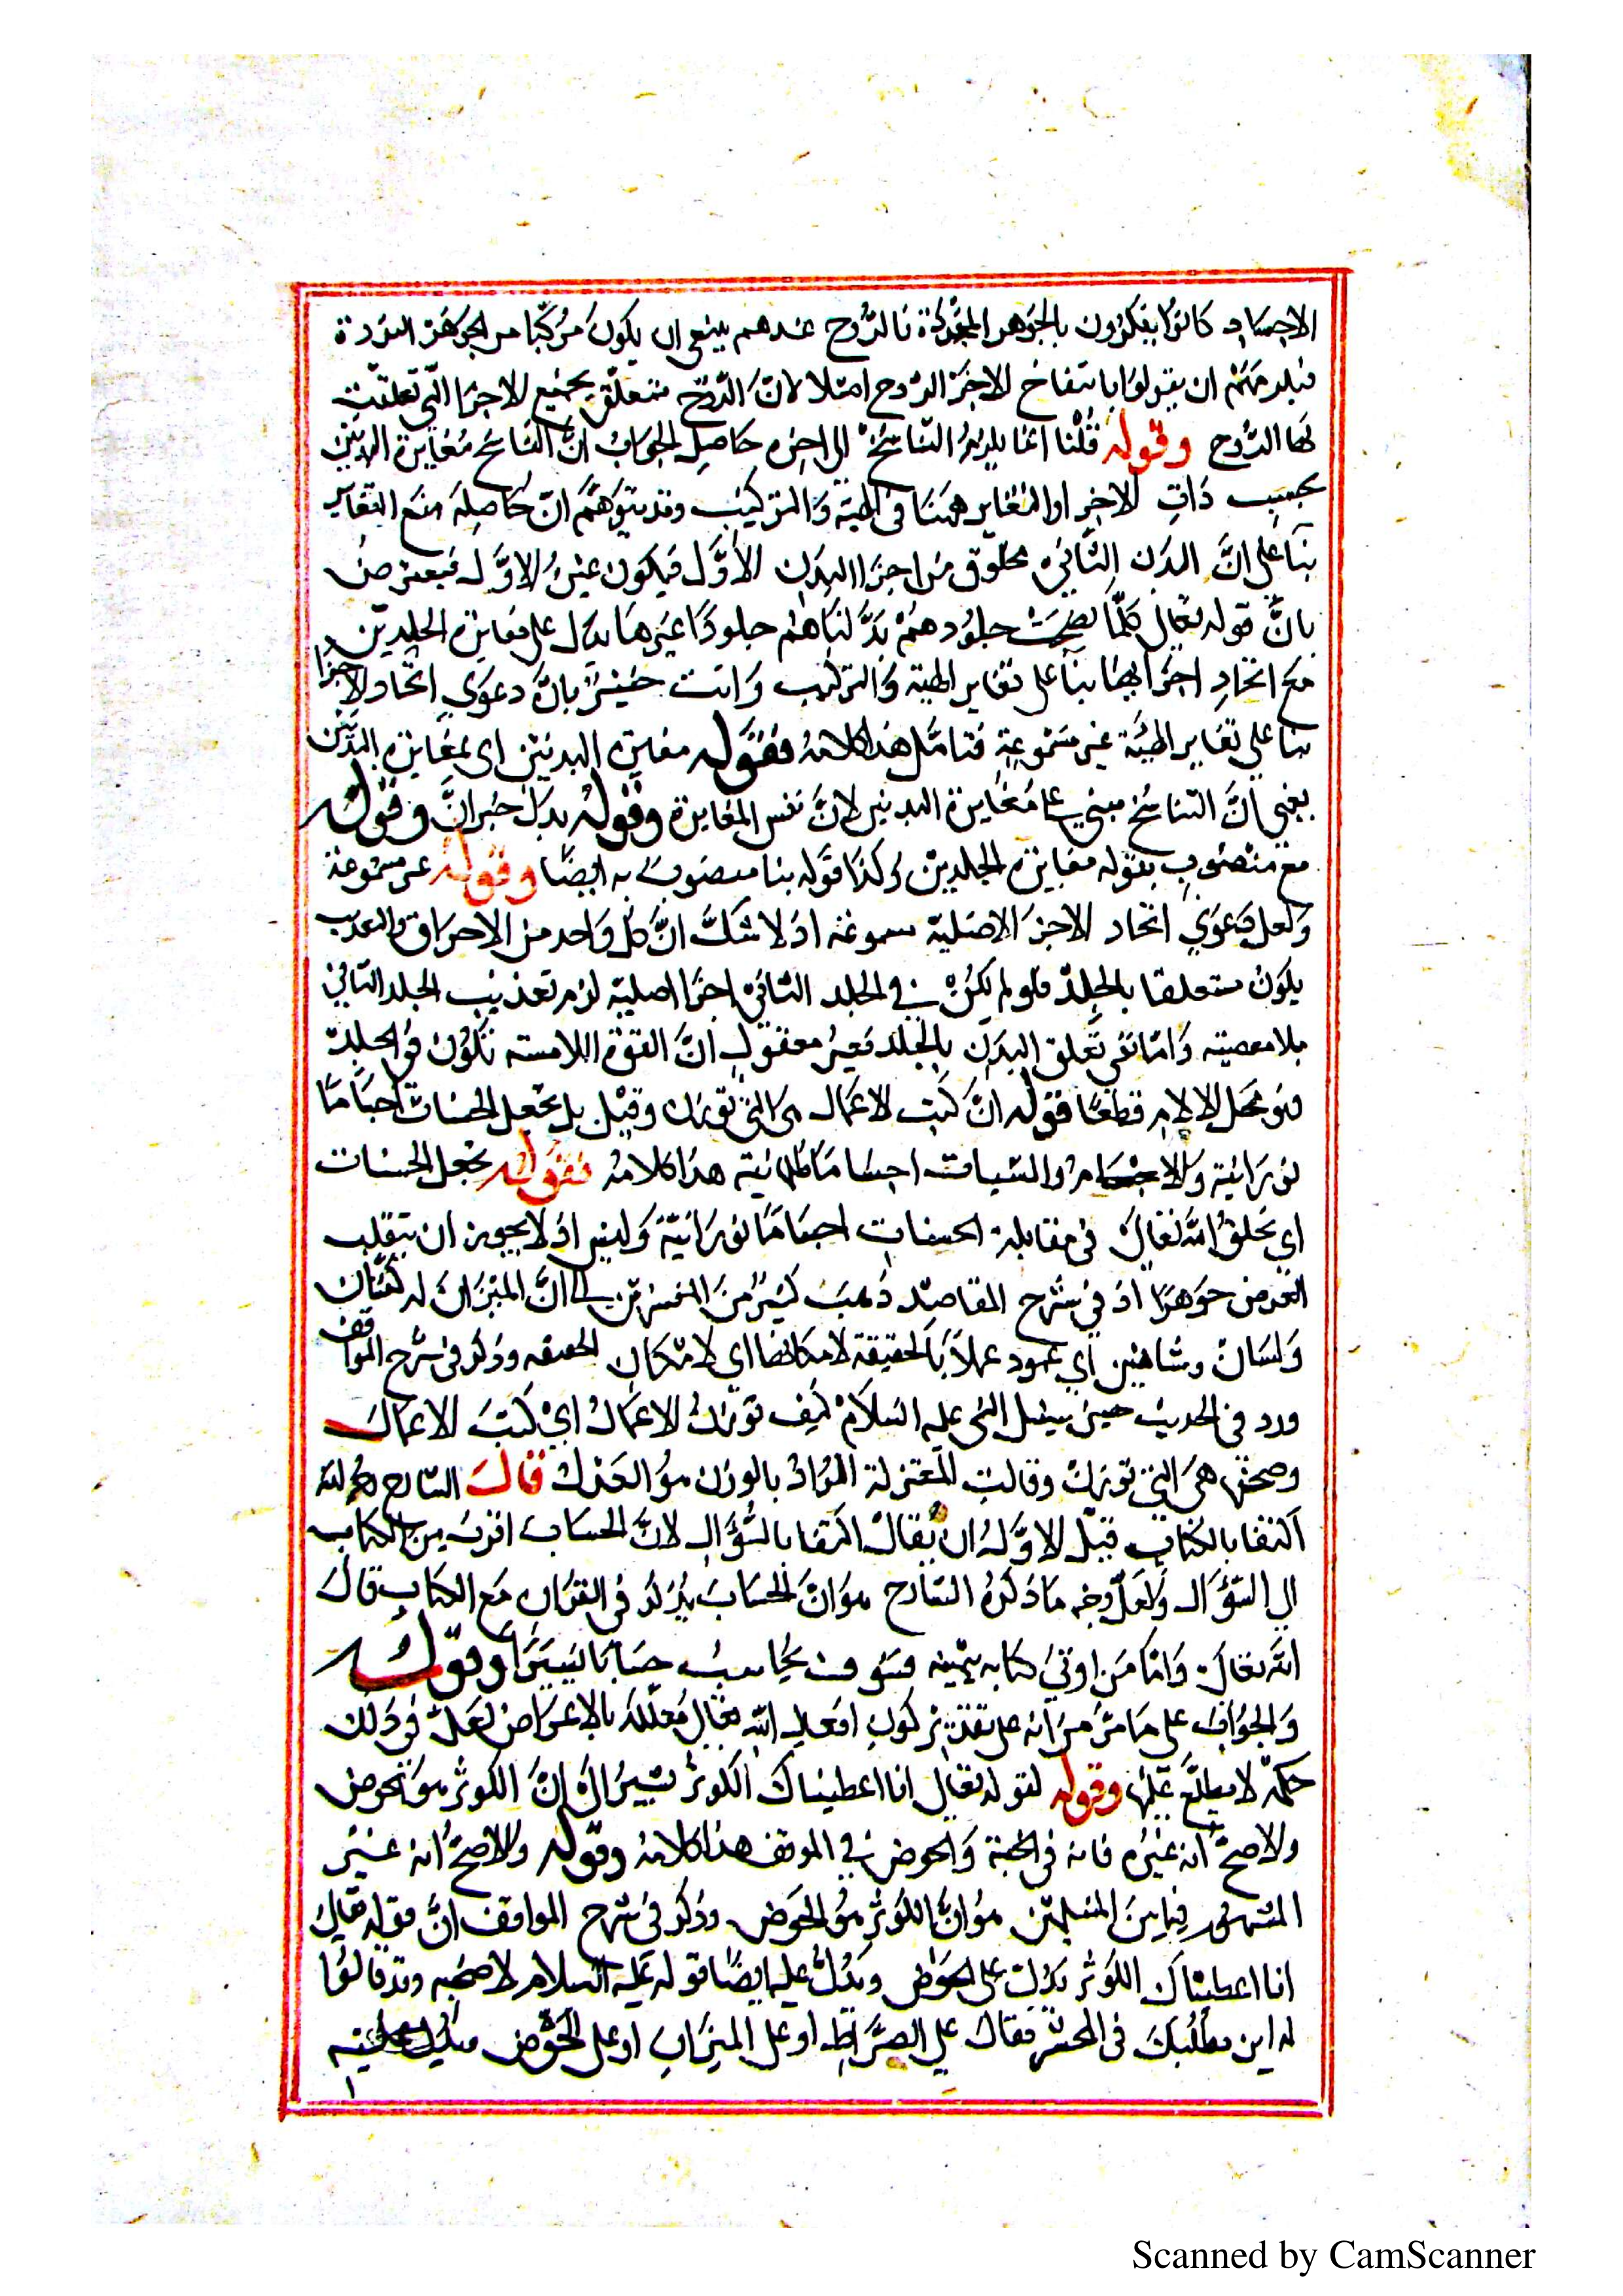 الاجساد كانوا ينكرون بالجوهر المجردة فالروح عندهم ينبغي ان يكون مركبا من الجوهر الفردة
فيلزمهم ان يقولوا بانتفاخ الاجزا الروح اصلا لانّ الروح متعلق بجميع الاجزا التي تعلقت
لها الروح وقوله قلنا انما يلزم التناسخ الى اخره حاصل الجواب انّ التناسخ مغايرة البدنين
بحسب ذات الاجزا والتغاير ههنا في الهيئة والتركيب وقد يتوهم انّ حاصله منع التغاير
بنا على انّ البدن الثاني مخلوق من اجزا البدن الاوّل فيكون عين الاوّل فيعترض
بانّ قوله تعالى كلّما نضجت جلودهم بدّلناهم جلودا غيرها يدل على مغايرة الجلدين
مع اتحاد اجزايهما بنا على تغاير الهيئة والتركيب وانت خبير بانّ دعوي اتحاد الاجزا
بنا على تغاير الهيئة غير مسموعة فتامّل هذا كلامه فقوله مغايرة البدنين اى بمغايرة البدنين
يعني انّ التناسخ مبني على مغايرة البدنين لانّ نفس المغايرة وقوله يدل خبر انّ وقوله
مع منصوب بقوله مغايرة الجلدين وكذا قوله بنا منصوب به ايضا وقوله غير مسموعة
ولعل دعوي اتحاد الاجزا الاصلية مسموعة اذ لا شك انّ كل واحد من الاحراق والتعذيب
يكون متعلقا بالجلد فلو لم يكن في الجلد الثاني اجزا اصلية لزم تعذيب الجلد الثاني
بلا معصيته وامّا نفى تعلق البدن بالجلد فغير معقول انّ القوة اللامسته تكون في الجلد
فهو محل الالام قطعا فقوله انّ كتب الاعمال هى التي توزن وقيل بل تجعل الحسنات اجساما
نورانية والاجسام والسيات اجساما ظلمانية هذا كلامه فقوله تجعل الحسنات
اي يخلق الله تعالى في مقابلة الحسنات اجساما نورانيّة وليس اذ لا يجوز ان ينقلب
العرض جوهرا اذ في شرح المقاصد ذهب كثير من المفسرين الى انّ الميزان له كفتان
ولسان وشاهين اي عمود عملا بالحقيقة لامكانها اى لامكان الحقيقه وذكر في شرح المواقف
ورد في الحديث حين سيل النبي عليه السلام كيف توزن الاعمال اي كتب الاعمال
وصحفها هي التي توزن وقالت المعتزلة المراد بالوزن هو العدل قال الشارح رحمه الله
اكتفا بالكتاب قيل الاوّل ان يقال اكتفا بالسّؤال لانّ الحساب اقرب من الكتاب
الى السّؤال ولعلّ وجه ما ذكره الشارح هو انّ الحساب يذكر في القران مع الكتاب قال
الله تعالى وامّا من اوتي كتابه بيمينه فسوف يحاسب حسابا يسيرا وقوله
والجواب على ما مرّ من انه على تقدير كون افعال الله تعالى معلّلة بالاعراض لعلّ في ذلك
حكمة لا يطلع عليها وقوله لقوله تعالى انا اعطيناك الكوثر يشير الى انّ الكوثر هو الحوض
والاصحّ انه غيره فانه في الجنة والحوض في الموقف هذا كلامه وقوله والاصحّ انه غير
المشهور فيما بين المسلمين هو انّ الكوثر هو الحوض وذكر في شرح المواقف انّ قوله تعالى
انا اعطيناك الكوثر يدل على الحوض ويدلّ عليه ايضا قوله عليه السلام لاصحابه وقد قالوا
له اين نطلبك في المحشر فقال على الصراط او على الميزان او على الحوض
Scanned by CamScanner